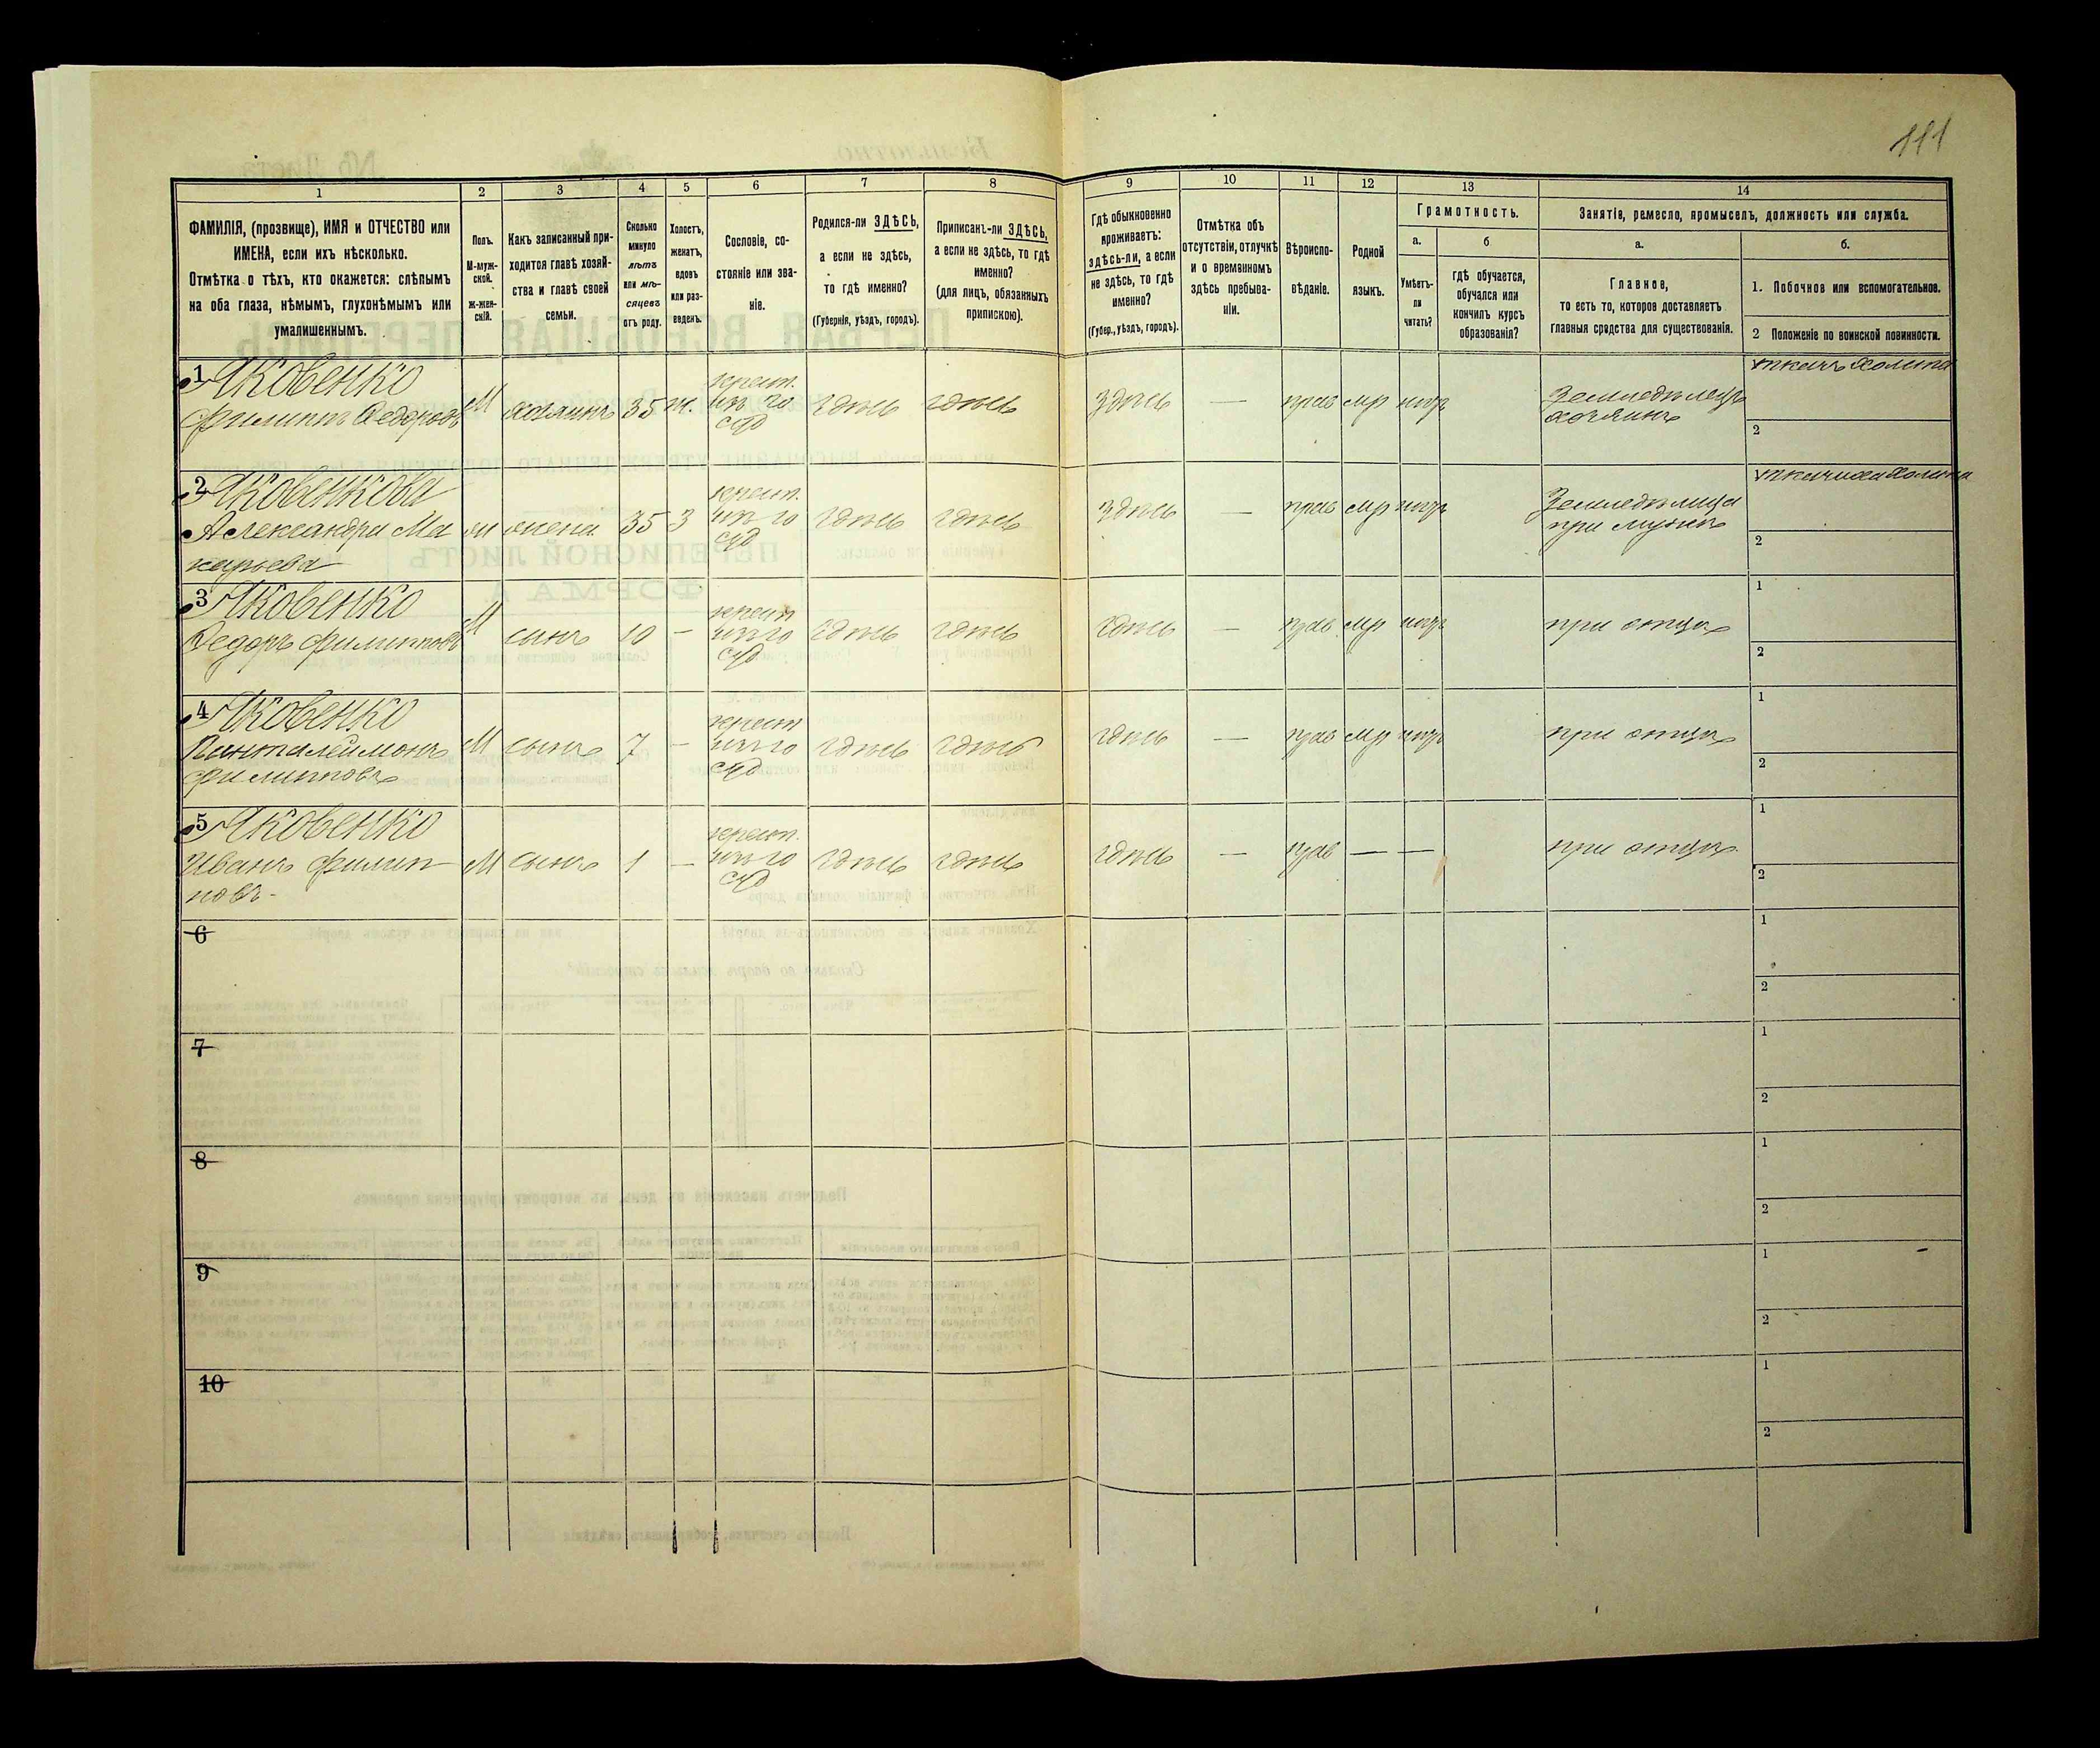 111
1 2 3 4 5 6 7 8 9 10 11 12 13 14
ФАМИЛІЯ, (прозвище), ИМЯ и ОТЧЕСТВО или
ИМЕНА, если ихъ нѣсколько.
Отмѣтка о тѣхъ, кто окажется: слѣпымъ
на оба глаза, нѣмымъ, глухонѣмымъ или
умалишеннымъ.
Полъ.
М-муж-
ской.
Ж-жен-
скій.
Какъ записанный при-
ходится главѣ хозяй-
ства и главѣ своей
семьи.
Сколько
минуло
лѣтъ
или мѣ-
сяцевъ
отъ роду.
Холостъ,
женатъ,
вдовъ
или раз-
веденъ.
Сословіе, со-
стояніе или зва-
ніе.
Родился-ли ЗДѢСЬ,
а если не здѣсь,
то гдѣ именно?
(Губернія, уѣздъ, городъ).
Приписанъ-ли ЗДѢСЬ,
а если не здѣсь, то гдѣ
именно?
(для лицъ, обязанныхъ
припискою).
Гдѣ обыкновенно
проживаетъ:
здѣсь-ли, а если
не здѣсь, то гдѣ
именно?
(Губер., уѣздъ, городъ).
Отмѣтка объ
отсутствіи, отлучкѣ
и о временномъ
здѣсь пребыва-
ніи.
Вѣроиспо-
вѣданіе.
Родной
языкъ.
Грамотность.
а.
Умѣетъ-
ли
читать?
б
гдѣ обучается,
обучался или
кончилъ курсъ
образованія?
Занятіе, ремесло, промыселъ, должность или служба.
а.
Главное,
то есть то, которое доставляетъ
главныя средства для существованія.
б.
1. Побочное или вспомогательное.
2 Положеніе по воинской повинности.
1 Яковенко
Филиппъ Федоровъ
М хозяинъ 35 ж. крест. изъ го здѣсь здѣсь здѣсь — прав мр нтъ
Земледѣлецъ
хозяинъ
ткачъ холста
2
2 Яковенкова
Александра Ма
карьева
ж жена 35 З крест. изъ го здѣсь здѣсь здѣсь — прав мр
Земледѣлица
при мужѣ
ткачиха холста
2
3 Яковенко
Федоръ Филипповъ
М сынъ 10 — крест изъ го здѣсь здѣсь здѣсь — прав мр
при отцѣ
1
2
4 Яковенко
Панталеймонъ
Филипповъ
М сынъ 7 — крест изъ го здѣсь здѣсь здѣсь — прав мр
при отцѣ
1
2
5 Яковенко
Иванъ Филип
повъ -
М сынъ 1 — крест. изъ го здѣсь здѣсь здѣсь — прав — —
при отцѣ
1
2
6
1
2
7
1
2
8
1
2
9
1
2
10
1
2